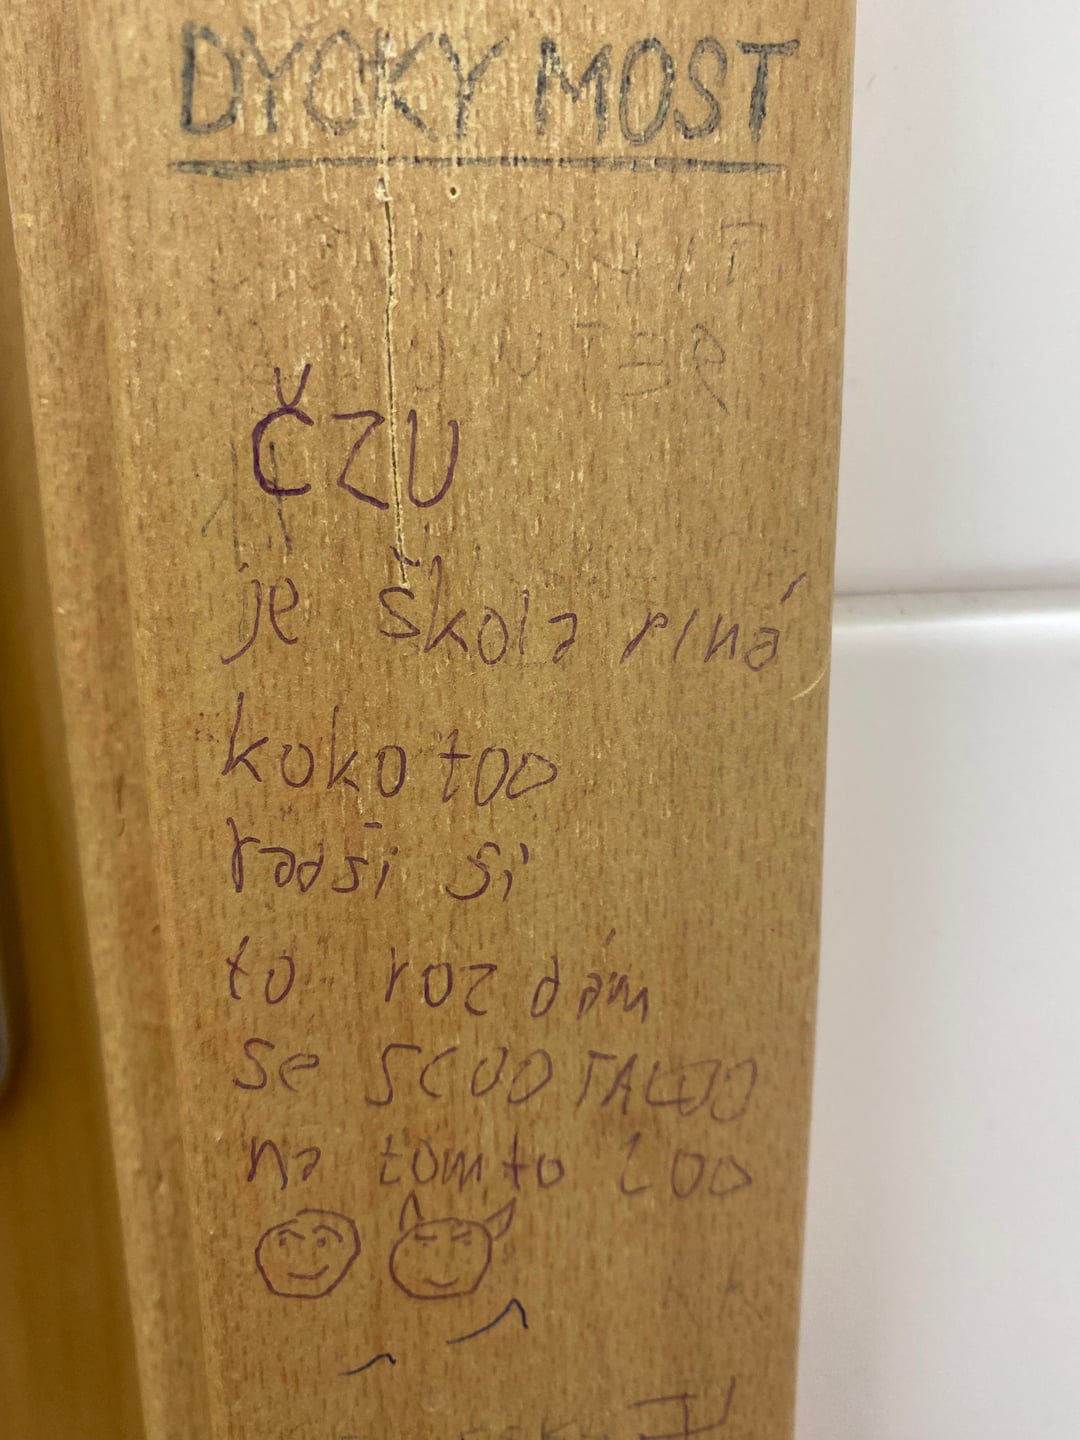 DYCKY MOST
ČZU
je škola plná
koko too
radši si
to roz dám
se SCOOTALOO
na tomto Loo